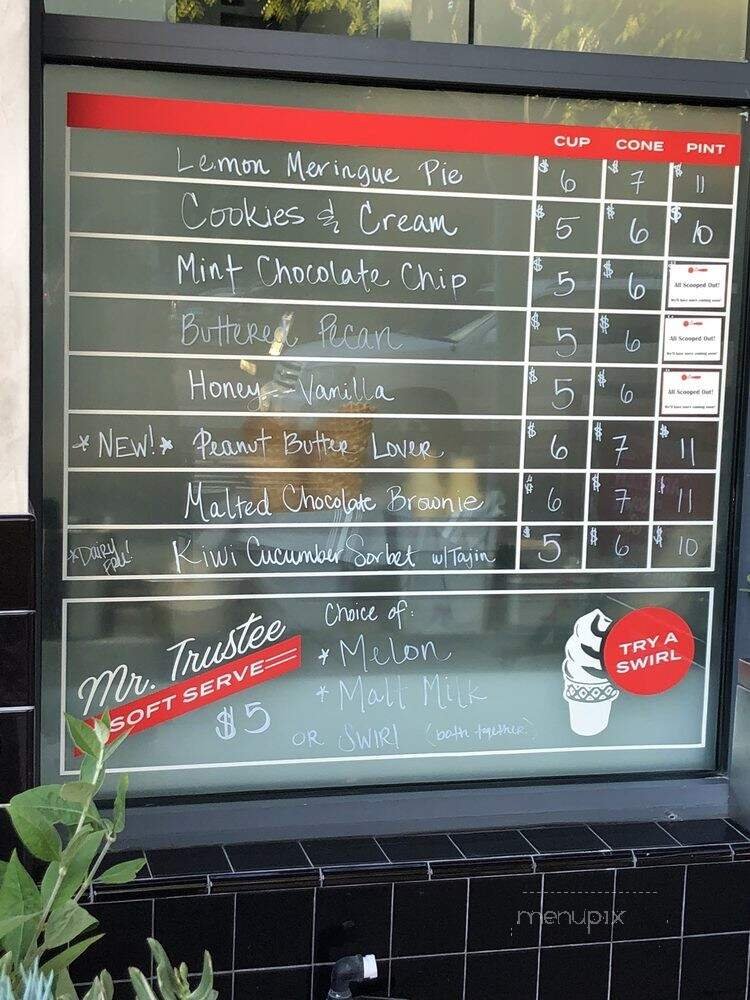 CUP CONE PINT
Lemon Meringue Pie $6 $7 $11
Cookies & Cream $5 $6 $10
Mint Chocolate Chip $5 $6 All Scooped Out! We'll have more coming soon!
Buttered Pecan $5 $6 All Scooped Out! We'll have more coming soon!
Honey Vanilla $5 $6 All Scooped Out! We'll have more coming soon!
*NEW!* Peanut Butter Lover $6 $7 $11
Malted Chocolate Brownie $6 $7 $11
*Dairy Free! Kiwi Cucumber Sorbet w/Tajin $5 $6 $10
Choice of:
Mr. Trustee
SOFT SERVE
$5
* Melon
* Malt Milk
OR SWIRL (both together)
TRY A
SWIRL
menupix